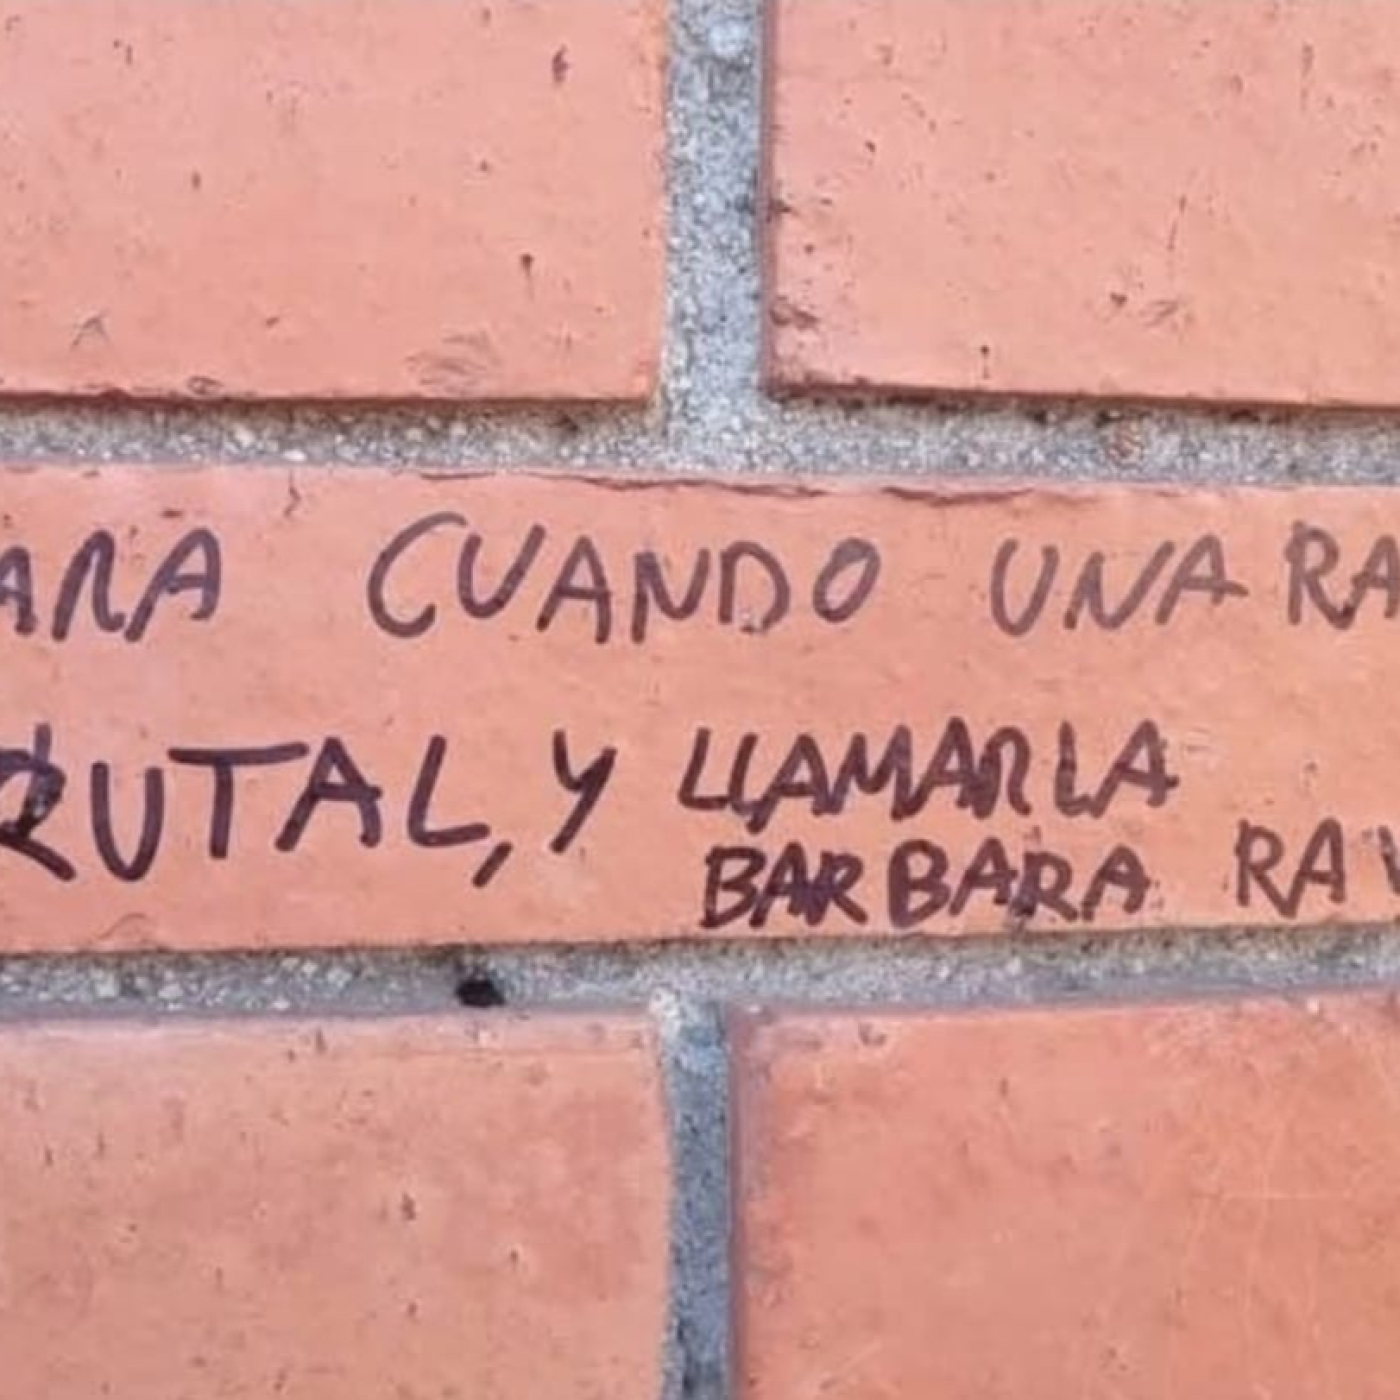 ARA CUANDO UNA RA
RUTAL, Y LLAMARLA
BARBARA RAV